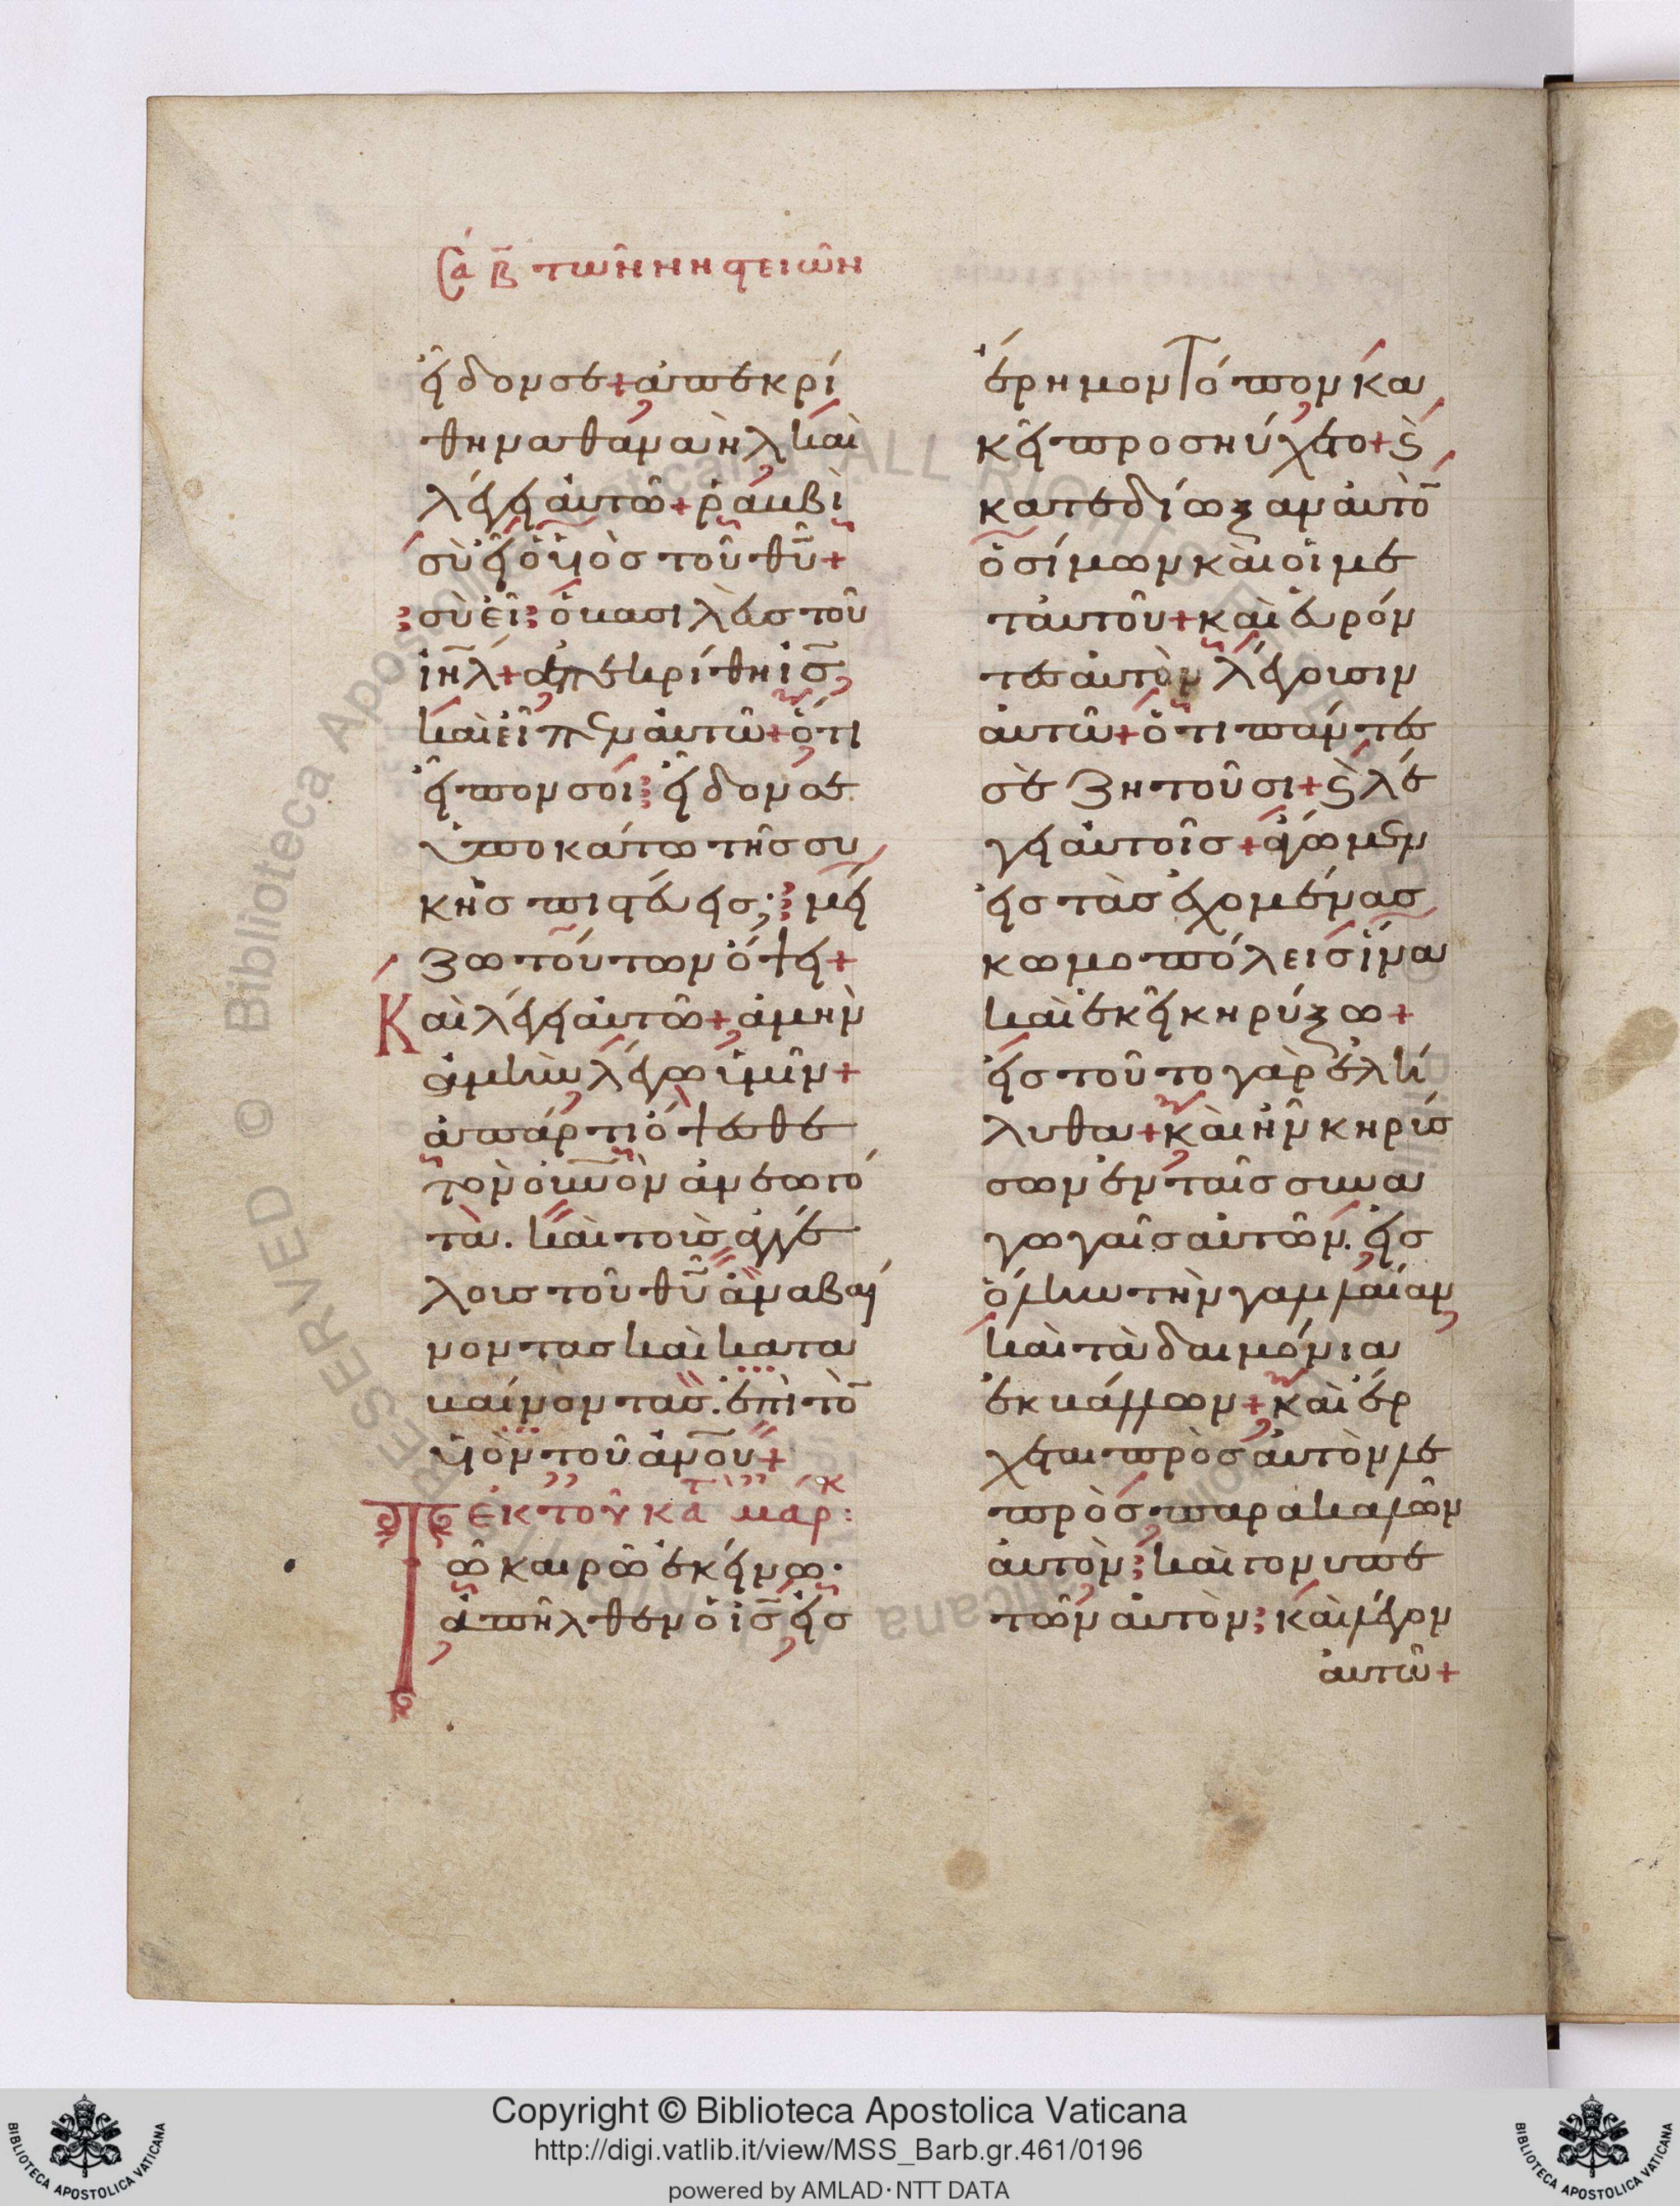 Σα Β τῶν νηστειῶν
εἶδον σε + ἀπεκρί
θη ναθαναὴλ καὶ
λέγει αὐτῶ + ῥαββὶ
σὺ εἶ ὁ υἱὸς τοῦ θυ +
σὺ εἶ ὁ βασιλεὺς τοῦ
ιηλ + ἀπεκρίθη ις
καὶ εἶπεν αὐτῶ + ὅτι
εἶπον σοι εἶδον σε
ὑποκάτω τῆς συ
κῆς πιστεύεις; μεί
ζω τούτων ὄψει +
Καὶ λέγει αὐτῶ + ἀμὴν
ἀμὴν λέγω ὑμῖν +
ἀπάρτι ὄψεσθε
τὸν οὐνὸν ἀνεωγό
τα. καὶ τοὺς ἀγγέ
λους τοῦ θυ ἀναβαί
νοντας καὶ κατα
βαίνοντας. ἐπὶ τὸ
υἱὸν τοῦ ἀνου +
ἐκ τοῦ κατὰ μάρκ :
Τῶ καιρῶ ἐκείνω.
ἀπῆλθεν ὁ ις εἰς
ἔρημον τόπον κα
κεῖ προσηύχετο + καὶ
κατεδίωξαν αὐτὸ
ὁ σίμων καὶ οἱ με
τ αὐτοῦ + καὶ εὑρόν
τες αὐτὸν λέγουσιν
αὐτῶ + ὅτι πάντες
σὲ ζητοῦσι + καὶ λέ
γει αὐτοῖς + ἄγωμεν
εἰς τὰς ἐχομένας
κωμοπόλεις ἵνα
καὶ ἐκεῖ κηρύξω +
εἰς τοῦτο γὰρ ἐλή
λυθα + καὶ ἦν κηρύσ
σων ἐν ταῖς συνα
γωγαῖς αὐτῶν. εἰς
ὅλην τὴν γαλλαίαν
καὶ τὰ δαιμόνια
ἐκβάλλων + καὶ ἔρ
χεται πρὸς αὐτὸν λε
πρὸς παρακαλῶν
αὐτὸν καὶ γονυπε
τῶν αὐτὸν καὶ λέγον
αὐτῶ +
Copyright © Biblioteca Apostolica Vaticana
http://digi.vatlib.it/view/MSS_Barb.gr.461/0196
powered by AMLAD·NTT DATA